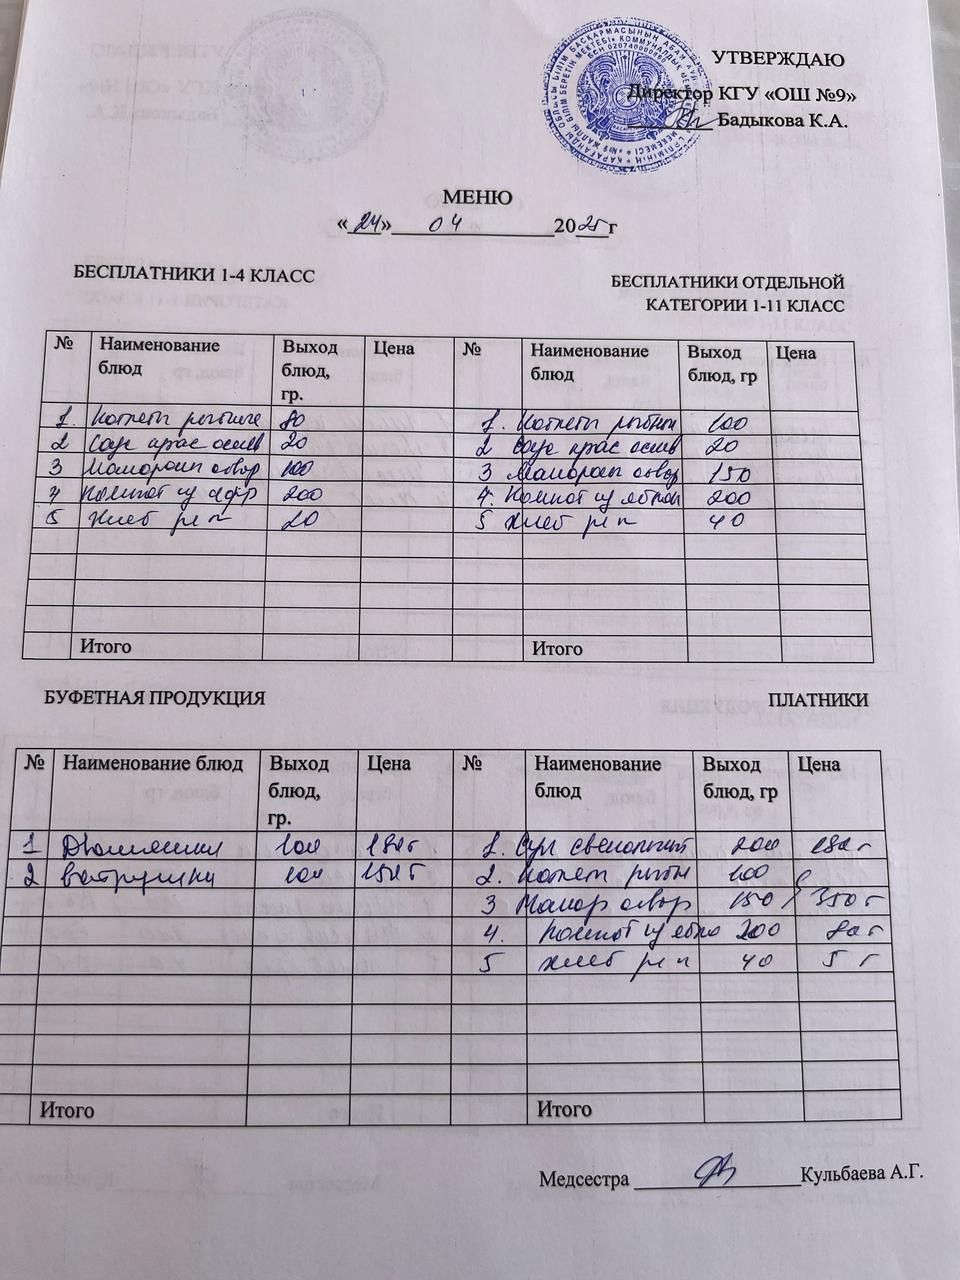 УТВЕРЖДАЮ
Директор КГУ «ОШ №9»
Бадыкова К.А.
МЕНЮ
«24» 04 2025г
БЕСПЛАТНИКИ 1-4 КЛАСС
БЕСПЛАТНИКИ ОТДЕЛЬНОЙ
КАТЕГОРИИ 1-11 КЛАСС
№ Наименование блюд Выход блюд, гр. Цена № Наименование блюд Выход блюд, гр Цена
1. Котлеты 80 1. Котлеты рыбн 100
2 Соус крас 20 2 Соус крас 20
3 отвар 100 3 отвар 150
4 Компот из 200 4. Компот из яблок 200
5 Хлеб рж п 20 5 Хлеб рж п 40
Итого Итого
БУФЕТНАЯ ПРОДУКЦИЯ ПЛАТНИКИ
№ Наименование блюд Выход блюд, гр. Цена № Наименование блюд Выход блюд, гр Цена
1 100 1. Суп 200
2 Ватрушки 100 150т 2. Котлет рыбн 100
3 отвар 150 350т
4. Компот из ябло 200 80т
5 хлеб рж п 40 5т
Итого Итого
Медсестра Кульбаева А.Г.